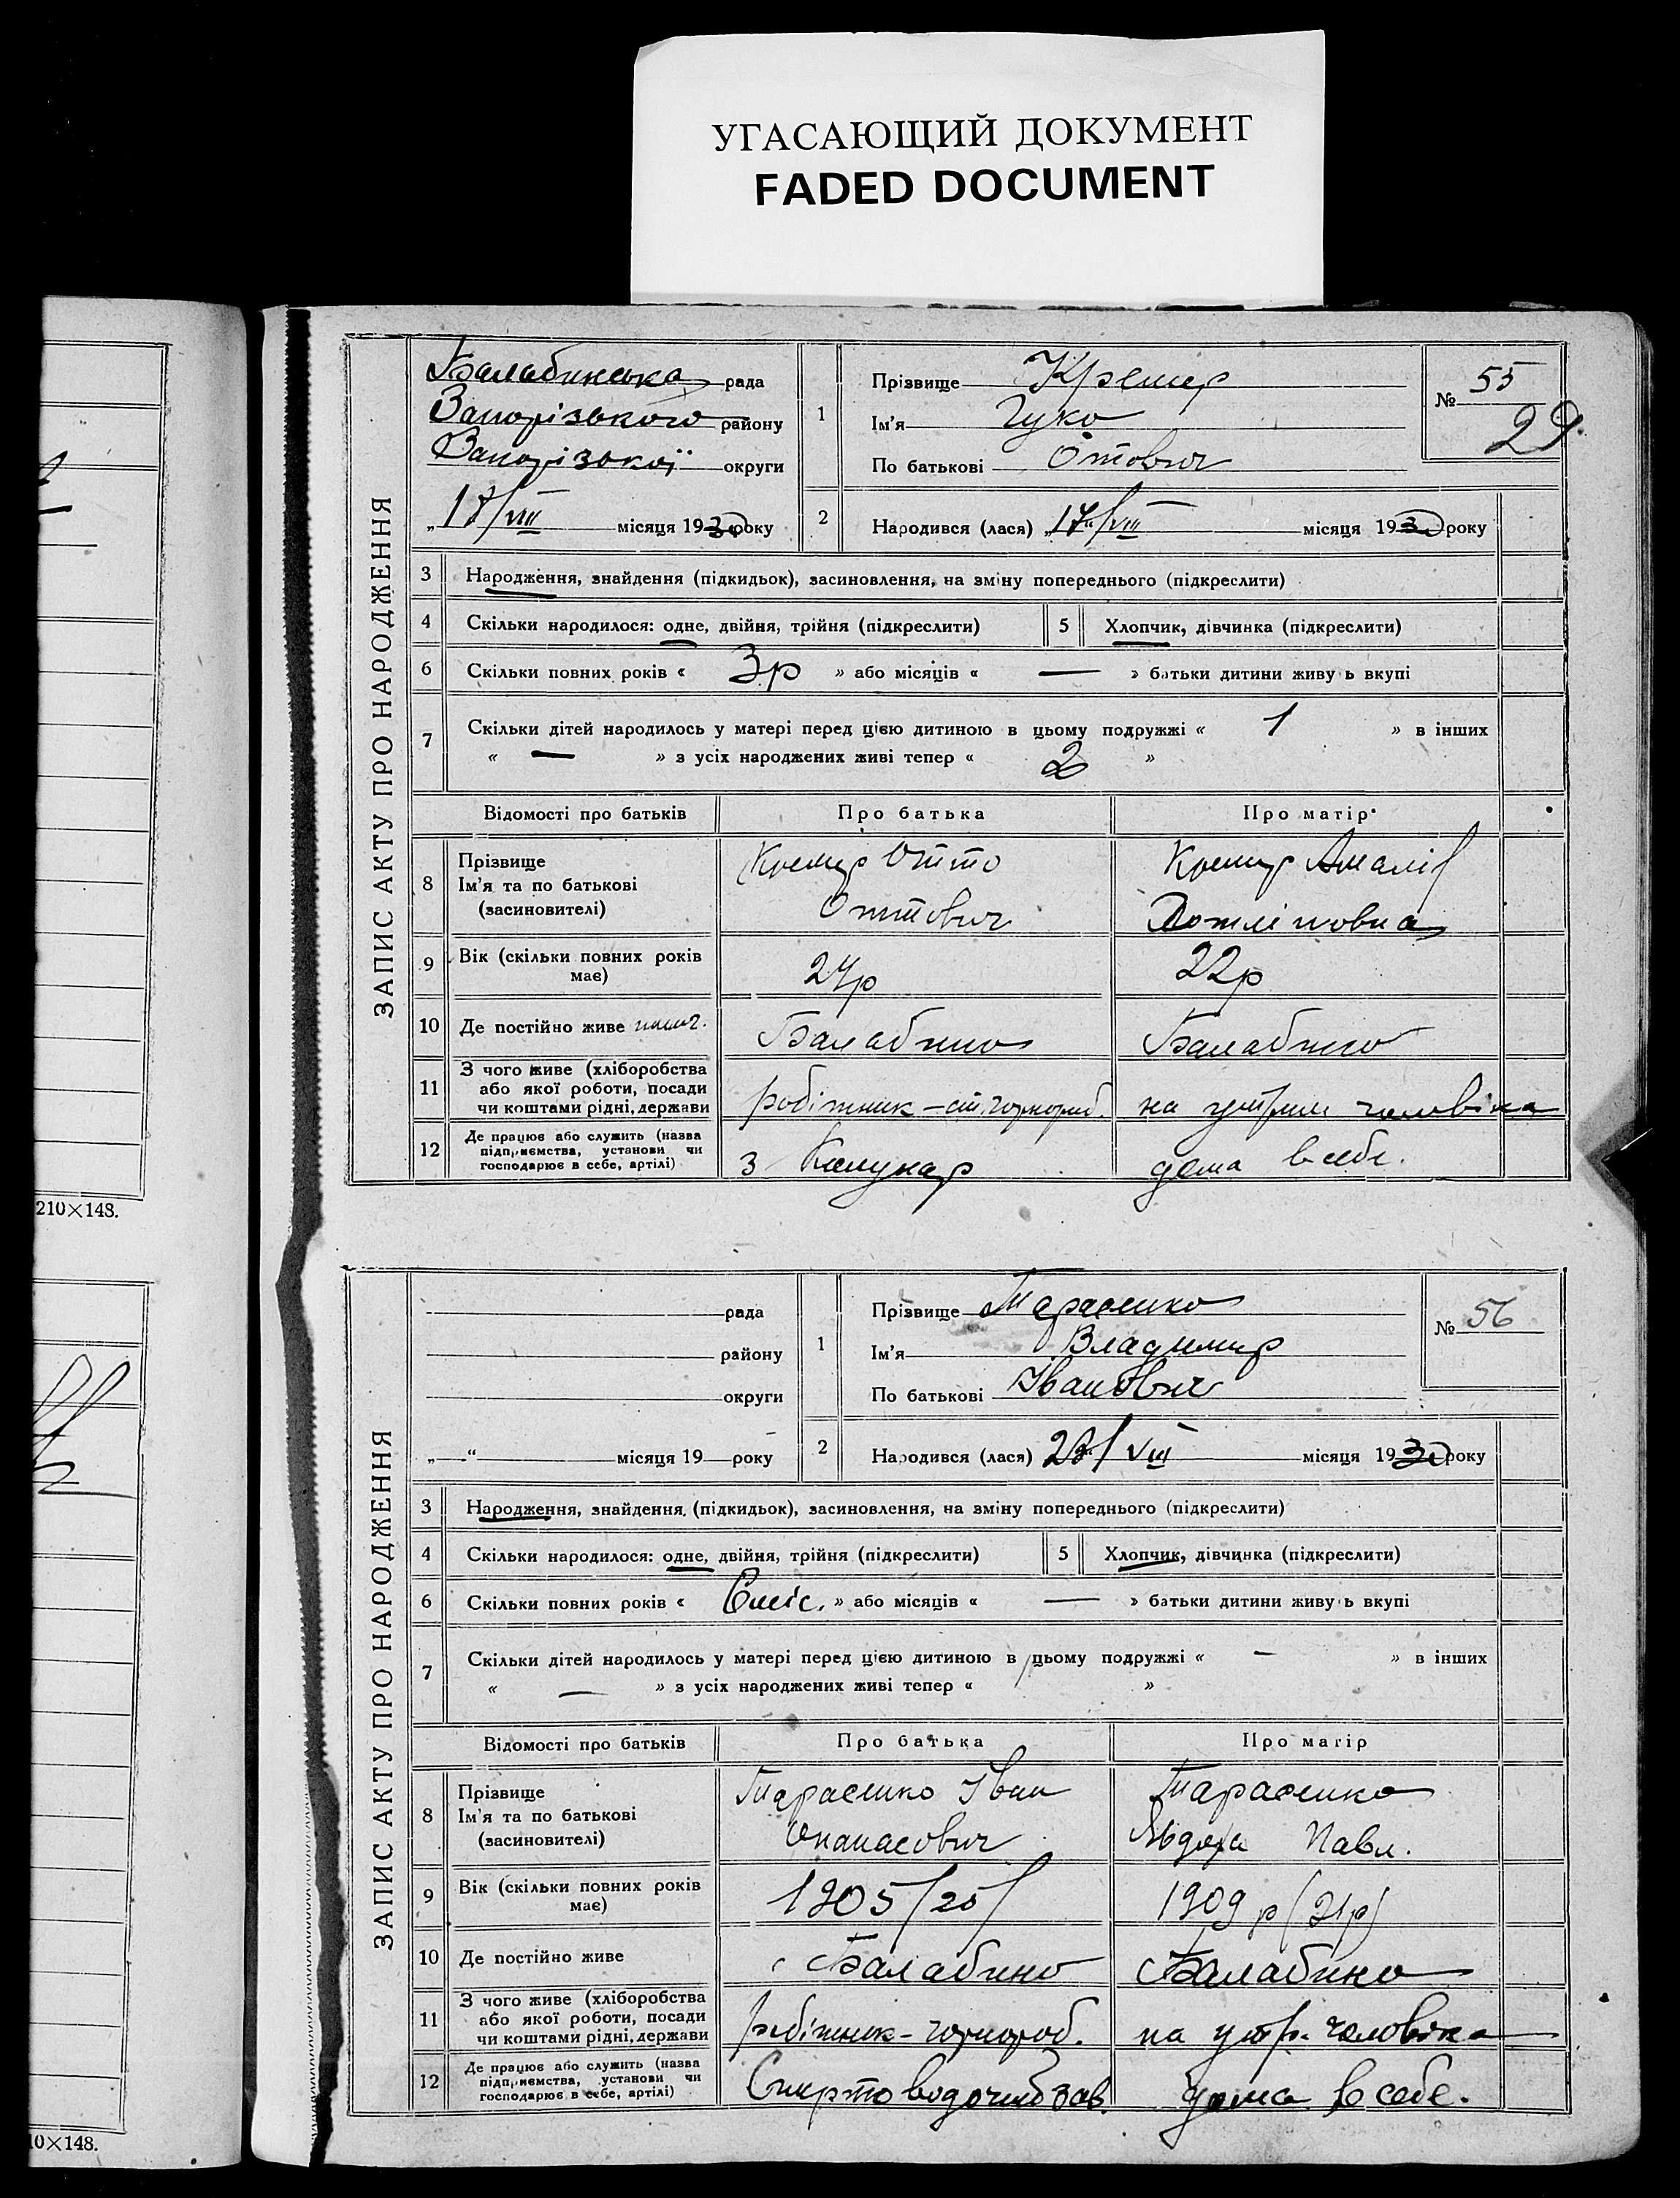 УГАСАЮЩИЙ ДОКУМЕНТ
FADED DOCUMENT
210×148.
10×148.
ЗАПИС АКТУ ПРО НАРОДЖЕННЯ
Балабинська рада
Запорізького району
Запорізької округи
„17/VIII місяця 1930 року
1 Прізвище Кремер
Ім'я Гуко
По батькові Отович
№ 55
29.
2 Народився (лася) „17“/VIII місяця 1930 року
3 Народження, знайдення (підкидьок), засиновлення, на зміну попереднього (підкреслити)
4 Скільки народилося: одне, двійня, трійня (підкреслити) 5 Хлопчик, дівчинка (підкреслити)
6 Скільки повних років « 3р » або місяців « — » батьки дитини живуть вкупі
7 Скільки дітей народилось у матері перед цією дитиною в цьому подружжі « 1 » в інших
« — » з усіх народжених живі тепер « 2 »
Відомості про батьків Про батька Про матір
8 Прізвище
Ім'я та по батькові
(засиновителі)
Кремер Отто
Оттович
Кремер Амалія
9 Вік (скільки повних років
має)
24р
22р
10 Де постійно живе
Балабино
Балабино
11 З чого живе (хліборобства
або якої роботи, посади
чи коштами рідні, держави
робітник – чорнороб.
на утрим чоловіка
12 Де працює або служить (назва
підприємства, установи чи
господарює в себе, артілі)
з Комунар
дома в себе.
ЗАПИС АКТУ ПРО НАРОДЖЕННЯ
рада
району
округи
„—“ місяця 19— року
1 Прізвище Тарасенко
Ім'я Владимир
По батькові Іванович
№ 56
2 Народився (лася) /VIII місяця 1930 року
3 Народження, знайдення, (підкидьок), засиновлення, на зміну попереднього (підкреслити)
4 Скільки народилося: одне, двійня, трійня (підкреслити) 5 Хлопчик, дівчинка (підкреслити)
6 Скільки повних років « 6 міс. » або місяців « — » батьки дитини живуть вкупі
7 Скільки дітей народилось у матері перед цією дитиною в цьому подружжі « — » в інших
« — » з усіх народжених живі тепер « »
Відомості про батьків Про батька Про матір
8 Прізвище
Ім'я та по батькові
(засиновителі)
Тарасенко Іван
Опанасович
Тарасенко
Явдоха Павл.
9 Вік (скільки повних років
має)
1905/25/
1909 р (21р)
10 Де постійно живе
с Балабино
с Балабино
11 З чого живе (хліборобства
або якої роботи, посади
чи коштами рідні, держави
робітник – чорнороб.
на утр. чоловіка
12 Де працює або служить (назва
підприємства, установи чи
господарює в себе, артілі)
Спирто зав.
дома в себе.